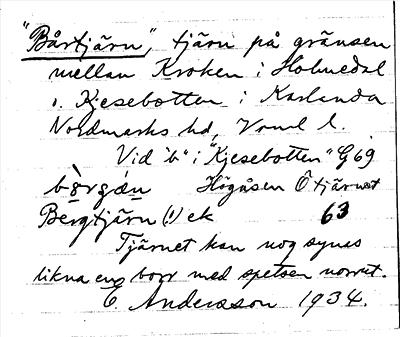 "Bårtjärn", tjärn på gränsen
mellan Kroken i Holmedal
o. Kjesebotten i Karlanda
Nordmarks hd, Vrml l.
Vid "b" i "Kjesebotten" G 69
Högåsen Ö tjärnet
Bergtjärn (!) ek 63
Tjärnet kan nog synas
likna en borr med spetsen norrut.
E. Andersson 1934.